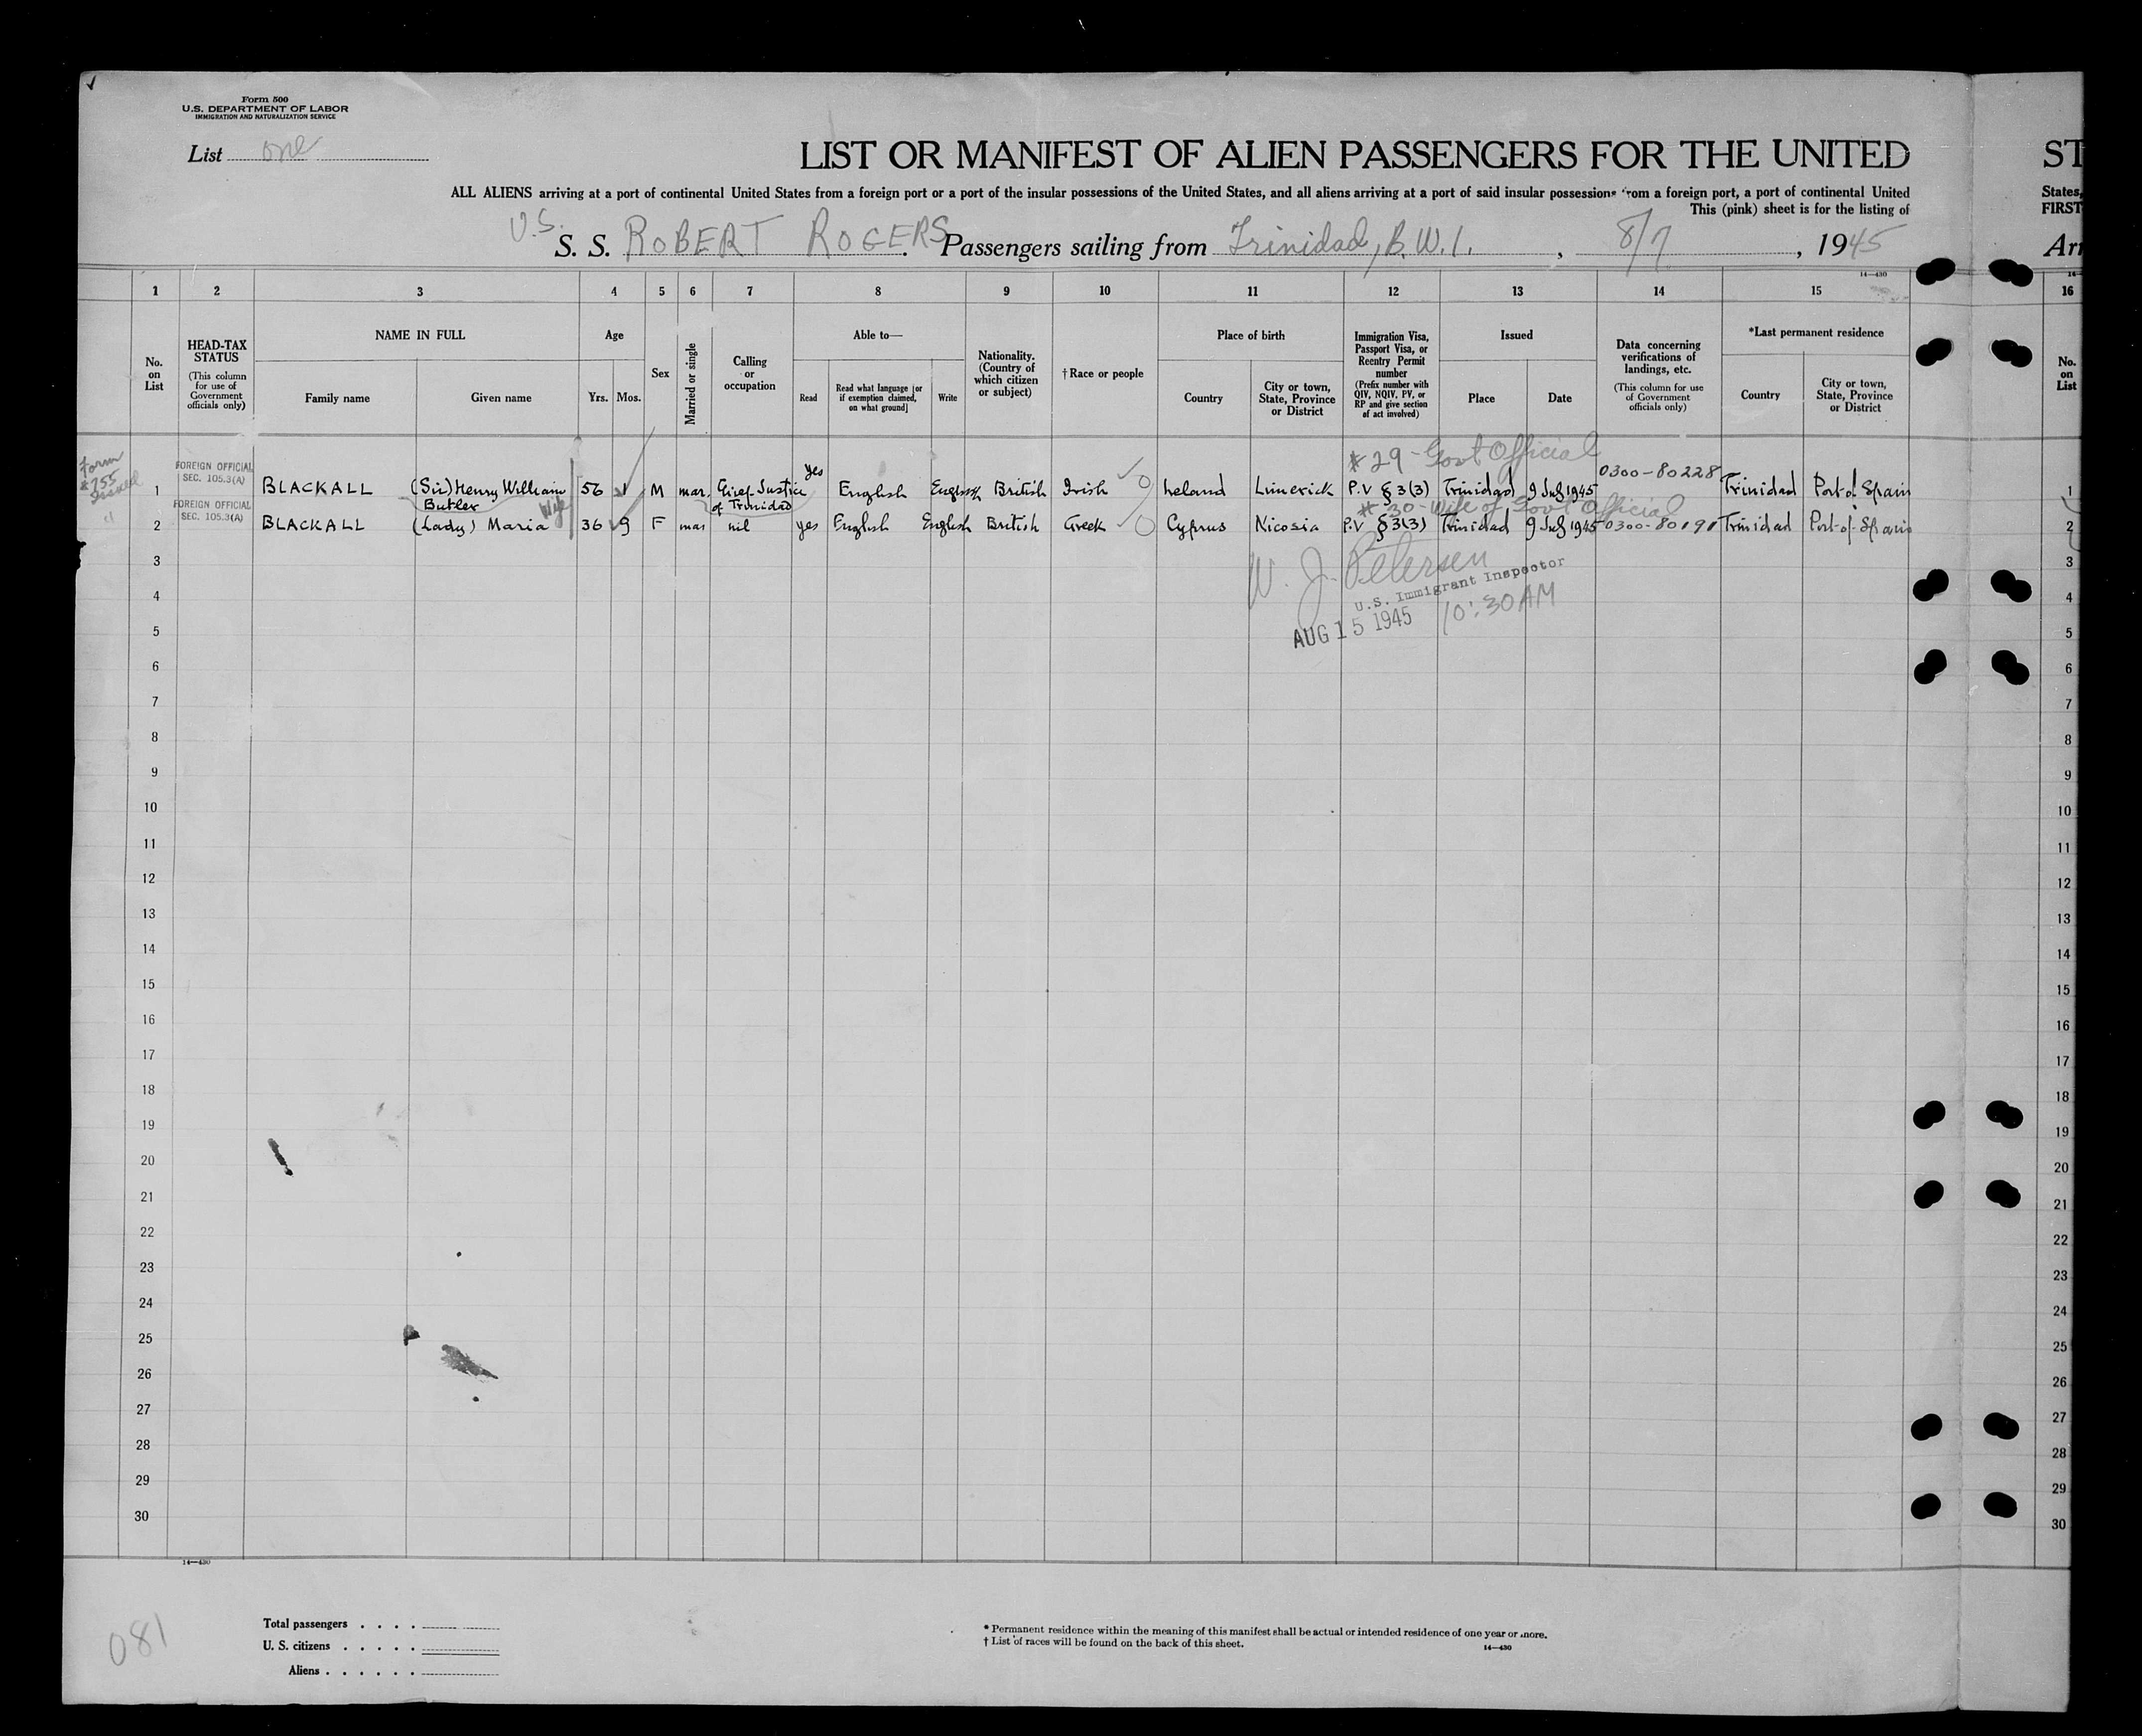 Form 500
U.S. DEPARTMENT OF LABOR
IMMIGRATION AND NATURALIZATION SERVICE
List one
LIST OR MANIFEST OF ALIEN PASSENGERS FOR THE UNITED ST
ALL ALIENS arriving at a port of continental United States from a foreign port or a port of the insular possessions of the United States, and all aliens arriving at a port of said insular possessions from a foreign port, a port of continental United States,
This (pink) sheet is for the listing of FIRST
U.S. S. S. ROBERT ROGERS. Passengers sailing from Trinidad, B.W.I., 8/7, 1945 Arr
14—430
1 2 3 4 5 6 7 8 9 10 11 12 13 14 15 16
No. on List
HEAD-TAX STATUS
(This column for use of Government officials only)
NAME IN FULL
Family name Given name
Age
Yrs. Mos.
Sex
Married or single
Calling or occupation
Able to—
Read
Read what language [or if exemption claimed, on what ground]
Write
Nationality. (Country of which citizen or subject)
†Race or people
Place of birth
Country
City or town, State, Province or District
Immigration Visa, Passport Visa, or Reentry Permit number
(Prefix number with QIV, NQIV, PV, or RP and give section of act involved)
Issued
Place Date
Data concerning verifications of landings, etc.
(This column for use of Government officials only)
*Last permanent residence
Country
City or town, State, Province or District
No. on List
Form
#255
issued
#29 - Govt Official
FOREIGN OFFICIAL
SEC. 105.3(A)
1 BLACKALL (Sir) Henry William Butler 56 1 M mar. Chief Justice of Trinidad yes English English British Irish Ireland Limerick P.V § 3(3) Trinidad 9 July 1945 0300-80228 Trinidad Port-of-Spain 1
#30 - Wife of Govt Official
FOREIGN OFFICIAL
SEC. 105.3(A)
2 BLACKALL (Lady) Maria Wife 36 9 F mar nil yes English English British Greek Cyprus Nicosia P.V § 3(3) Trinidad 9 July 1945 0300-80191 Trinidad Port-of-Spain 2
W. J. Petersen
U.S. Immigrant Inspector
AUG 15 1945 10:30 AM
3 3
4 4
5 5
6 6
7 7
8 8
9 9
10 10
11 11
12 12
13 13
14 14
15 15
16 16
17 17
18 18
19 19
20 20
21 21
22 22
23 23
24 24
25 25
26 26
27 27
28 28
29 29
30 30
14—430
081
Total passengers . . . .
U. S. citizens . . . . .
Aliens . . . . . .
* Permanent residence within the meaning of this manifest shall be actual or intended residence of one year or more.
† List of races will be found on the back of this sheet.
14—430